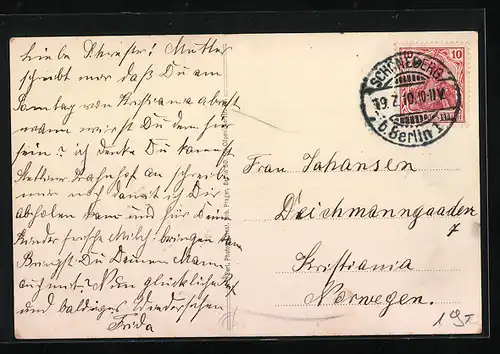 Liebe Schwester! Mutter
schreibt mir daß Du am
Sonntag von Kristiania abreist
wann wirst Du denn hier
sein? ich denke Du kommst
Stettiner Bahnhof an schreibe
mir noch damit ich Dir
abholen kann und für Deine
Kinder frische Milch bringen kann
Bringst Du Deinen Mann
auch mit? Nun glückliche
und baldiges Wiedersehen
Frida
10
SCHÖNEBERG
19.7.10.10-11V.
b. Berlin 1
Frau Johansen
Deichmanngaaden
7
Kristiania
Norwegen.